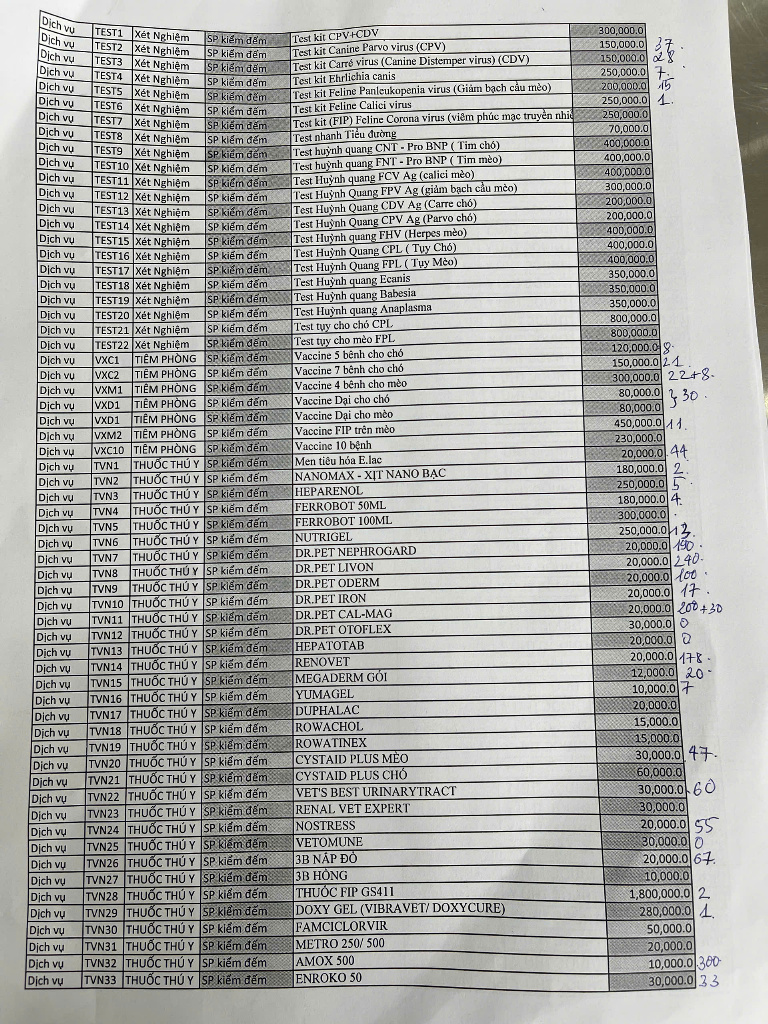 Dịch vụ TEST1 Xét Nghiệm SP kiểm đếm Test kit CPV+CDV 300,000.0
Dịch vụ TEST2 Xét Nghiệm SP kiểm đếm Test kit Canine Parvo virus (CPV) 150,000.0 37.
Dịch vụ TEST3 Xét Nghiệm SP kiểm đếm Test kit Carré virus (Canine Distemper virus) (CDV) 150,000.0 28
Dịch vụ TEST4 Xét Nghiệm SP kiểm đếm Test kit Ehrlichia canis 250,000.0 7.
Dịch vụ TEST5 Xét Nghiệm SP kiểm đếm Test kit Feline Panleukopenia virus (Giảm bạch cầu mèo) 200,000.0 15
Dịch vụ TEST6 Xét Nghiệm SP kiểm đếm Test kit Feline Calici virus 250,000.0 1.
Dịch vụ TEST7 Xét Nghiệm SP kiểm đếm Test kit (FIP) Feline Corona virus (viêm phúc mạc truyền nhiễ 250,000.0
Dịch vụ TEST8 Xét Nghiệm SP kiểm đếm Test nhanh Tiểu đường 70,000.0
Dịch vụ TEST9 Xét Nghiệm SP kiểm đếm Test huỳnh quang CNT - Pro BNP ( Tim chó) 400,000.0
Dịch vụ TEST10 Xét Nghiệm SP kiểm đếm Test huỳnh quang FNT - Pro BNP ( Tim mèo) 400,000.0
Dịch vụ TEST11 Xét Nghiệm SP kiểm đếm Test Huỳnh quang FCV Ag (calici mèo) 400,000.0
Dịch vụ TEST12 Xét Nghiệm SP kiểm đếm Test Huỳnh Quang FPV Ag (giảm bạch cầu mèo) 300,000.0
Dịch vụ TEST13 Xét Nghiệm SP kiểm đếm Test Huỳnh Quang CDV Ag (Carre chó) 200,000.0
Dịch vụ TEST14 Xét Nghiệm SP kiểm đếm Test Huỳnh Quang CPV Ag (Parvo chó) 200,000.0
Dịch vụ TEST15 Xét Nghiệm SP kiểm đếm Test Huỳnh quang FHV (Herpes mèo) 400,000.0
Dịch vụ TEST16 Xét Nghiệm SP kiểm đếm Test Huỳnh Quang CPL ( Tụy Chó) 400,000.0
Dịch vụ TEST17 Xét Nghiệm SP kiểm đếm Test Huỳnh Quang FPL ( Tụy Mèo) 400,000.0
Dịch vụ TEST18 Xét Nghiệm SP kiểm đếm Test Huỳnh quang Ecanis 350,000.0
Dịch vụ TEST19 Xét Nghiệm SP kiểm đếm Test Huỳnh quang Babesia 350,000.0
Dịch vụ TEST20 Xét Nghiệm SP kiểm đếm Test Huỳnh quang Anaplasma 350,000.0
Dịch vụ TEST21 Xét Nghiệm SP kiểm đếm Test tụy cho chó CPL 800,000.0
Dịch vụ TEST22 Xét Nghiệm SP kiểm đếm Test tụy cho mèo FPL 800,000.0
Dịch vụ VXC1 TIÊM PHÒNG SP kiểm đếm Vaccine 5 bệnh cho chó 120,000.0 8.
Dịch vụ VXC2 TIÊM PHÒNG SP kiểm đếm Vaccine 7 bệnh cho chó 150,000.0 21.
Dịch vụ VXM1 TIÊM PHÒNG SP kiểm đếm Vaccine 4 bệnh cho mèo 300,000.0 22+8.
Dịch vụ VXD1 TIÊM PHÒNG SP kiểm đếm Vaccine Dại cho chó 80,000.0 } 30.
Dịch vụ VXD1 TIÊM PHÒNG SP kiểm đếm Vaccine Dại cho mèo 80,000.0
Dịch vụ VXM2 TIÊM PHÒNG SP kiểm đếm Vaccine FIP trên mèo 450,000.0 11.
Dịch vụ VXC10 TIÊM PHÒNG SP kiểm đếm Vaccine 10 bệnh 230,000.0
Dịch vụ TVN1 THUỐC THÚ Y SP kiểm đếm Men tiêu hóa E.lac 20,000.0 44
Dịch vụ TVN2 THUỐC THÚ Y SP kiểm đếm NANOMAX - XỊT NANO BẠC 180,000.0 2.
Dịch vụ TVN3 THUỐC THÚ Y SP kiểm đếm HEPARENOL 250,000.0 5
Dịch vụ TVN4 THUỐC THÚ Y SP kiểm đếm FERROBOT 50ML 180,000.0 4.
Dịch vụ TVN5 THUỐC THÚ Y SP kiểm đếm FERROBOT 100ML 300,000.0
Dịch vụ TVN6 THUỐC THÚ Y SP kiểm đếm NUTRIGEL 250,000.0 13.
Dịch vụ TVN7 THUỐC THÚ Y SP kiểm đếm DR.PET NEPHROGARD 20,000.0 190.
Dịch vụ TVN8 THUỐC THÚ Y SP kiểm đếm DR.PET LIVON 20,000.0 240.
Dịch vụ TVN9 THUỐC THÚ Y SP kiểm đếm DR.PET ODERM 20,000.0 100.
Dịch vụ TVN10 THUỐC THÚ Y SP kiểm đếm DR.PET IRON 20,000.0 17.
Dịch vụ TVN11 THUỐC THÚ Y SP kiểm đếm DR.PET CAL-MAG 20,000.0 200+30
Dịch vụ TVN12 THUỐC THÚ Y SP kiểm đếm DR.PET OTOFLEX 30,000.0 0
Dịch vụ TVN13 THUỐC THÚ Y SP kiểm đếm HEPATOTAB 20,000.0 0
Dịch vụ TVN14 THUỐC THÚ Y SP kiểm đếm RENOVET 20,000.0 178.
Dịch vụ TVN15 THUỐC THÚ Y SP kiểm đếm MEGADERM GÓI 12,000.0 20.
Dịch vụ TVN16 THUỐC THÚ Y SP kiểm đếm YUMAGEL 10,000.0 7
Dịch vụ TVN17 THUỐC THÚ Y SP kiểm đếm DUPHALAC 20,000.0
Dịch vụ TVN18 THUỐC THÚ Y SP kiểm đếm ROWACHOL 15,000.0
Dịch vụ TVN19 THUỐC THÚ Y SP kiểm đếm ROWATINEX 15,000.0
Dịch vụ TVN20 THUỐC THÚ Y SP kiểm đếm CYSTAID PLUS MÈO 30,000.0 47.
Dịch vụ TVN21 THUỐC THÚ Y SP kiểm đếm CYSTAID PLUS CHÓ 60,000.0
Dịch vụ TVN22 THUỐC THÚ Y SP kiểm đếm VET'S BEST URINARYTRACT 30,000.0 60
Dịch vụ TVN23 THUỐC THÚ Y SP kiểm đếm RENAL VET EXPERT 30,000.0
Dịch vụ TVN24 THUỐC THÚ Y SP kiểm đếm NOSTRESS 20,000.0 55
Dịch vụ TVN25 THUỐC THÚ Y SP kiểm đếm VETOMUNE 30,000.0 0
Dịch vụ TVN26 THUỐC THÚ Y SP kiểm đếm 3B NẮP ĐỎ 20,000.0 67.
Dịch vụ TVN27 THUỐC THÚ Y SP kiểm đếm 3B HỒNG 10,000.0
Dịch vụ TVN28 THUỐC THÚ Y SP kiểm đếm THUỐC FIP GS411 1,800,000.0 2
Dịch vụ TVN29 THUỐC THÚ Y SP kiểm đếm DOXY GEL (VIBRAVET/ DOXYCURE) 280,000.0 1.
Dịch vụ TVN30 THUỐC THÚ Y SP kiểm đếm FAMCICLORVIR 50,000.0
Dịch vụ TVN31 THUỐC THÚ Y SP kiểm đếm METRO 250/ 500 20,000.0
Dịch vụ TVN32 THUỐC THÚ Y SP kiểm đếm AMOX 500 10,000.0 300
Dịch vụ TVN33 THUỐC THÚ Y SP kiểm đếm ENROKO 50 30,000.0 33